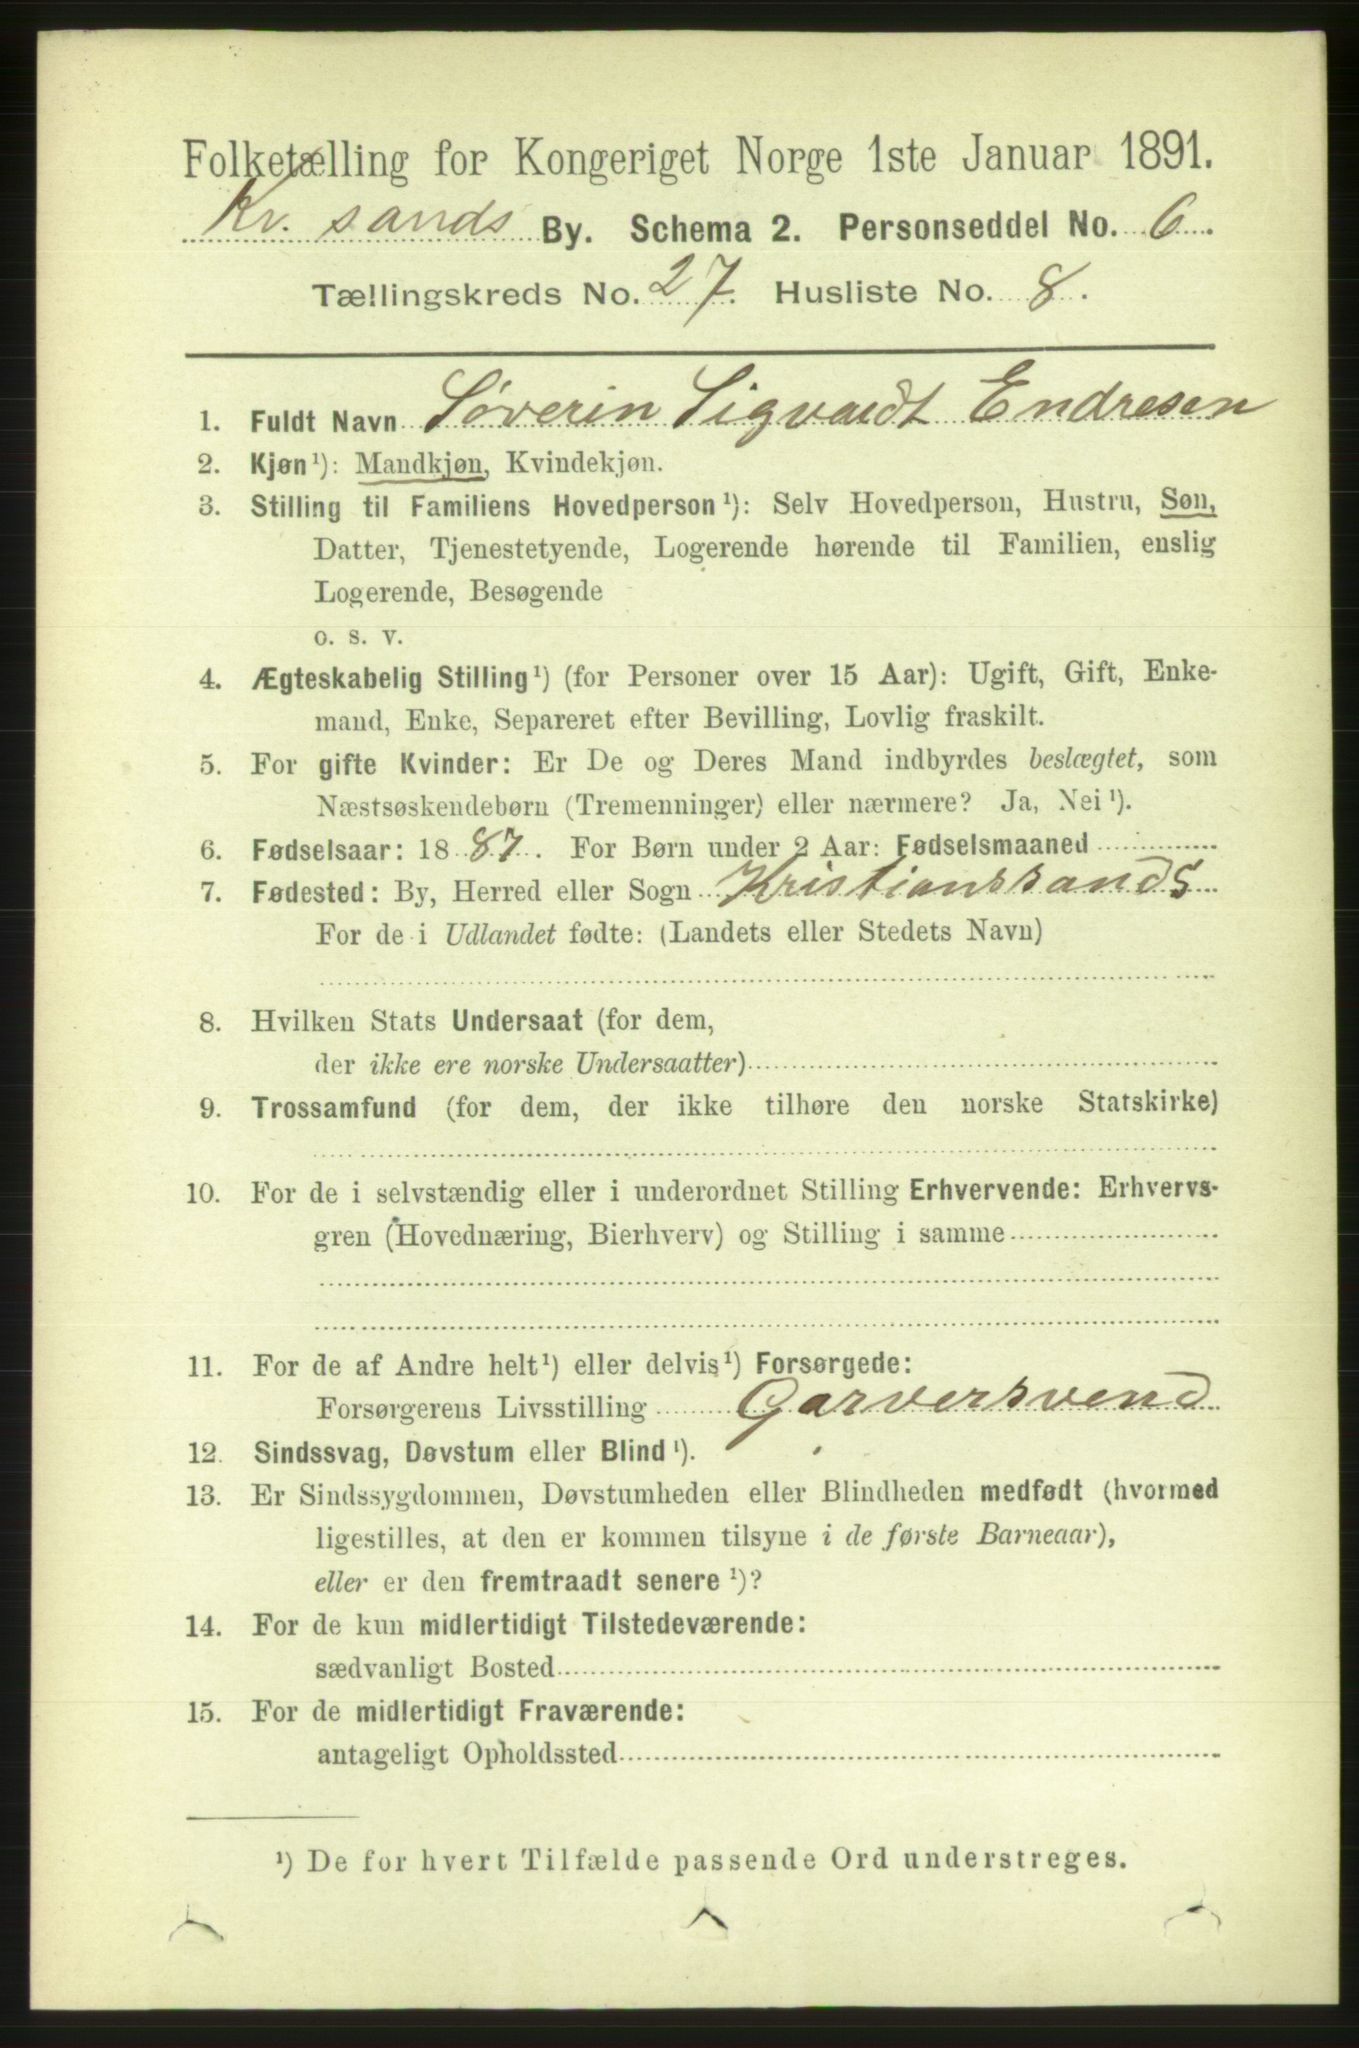 Folketælling for Kongeriget Norge 1ste Januar 1891.
Kr. sands By. Schema 2. Personseddel No. 6.
Tællingskreds No. 27. Husliste No. 8.
1. Fuldt Navn Søverin Sigvardt Endresen
2. Kjøn¹): Mandkjøn, Kvindekjøn.
3. Stilling til Familiens Hovedperson¹): Selv Hovedperson, Hustru, Søn,
Datter, Tjenestetyende, Logerende hørende til Familien, enslig
Logerende, Besøgende
o. s. v.
4. Ægteskabelig Stilling¹) (for Personer over 15 Aar): Ugift, Gift, Enke-
mand, Enke, Separeret efter Bevilling, Lovlig fraskilt.
5. For gifte Kvinder: Er De og Deres Mand indbyrdes beslægtet, som
Næstsøskendebørn (Tremenninger) eller nærmere? Ja, Nei¹).
6. Fødselsaar: 1887. For Børn under 2 Aar: Fødselsmaaned
7. Fødested: By, Herred eller Sogn Kristianssands
For de i Udlandet fødte: (Landets eller Stedets Navn)
8. Hvilken Stats Undersaat (for dem,
der ikke ere norske Undersaatter)
9. Trossamfund (for dem, der ikke tilhøre den norske Statskirke)
10. For de i selvstændig eller i underordnet Stilling Erhvervende: Erhvervs-
gren (Hovednæring, Bierhverv) og Stilling i samme
11. For de af Andre helt¹) eller delvis¹) Forsørgede:
Forsørgerens Livsstilling Garversvend
12. Sindssvag, Døvstum eller Blind¹).
13. Er Sindssygdommen, Døvstumheden eller Blindheden medfødt (hvormed
ligestilles, at den er kommen tilsyne i de første Barneaar),
eller er den fremtraadt senere¹)?
14. For de kun midlertidigt Tilstedeværende:
sædvanligt Bosted
15. For de midlertidigt Fraværende:
antageligt Opholdssted
¹) De for hvert Tilfælde passende Ord understreges.